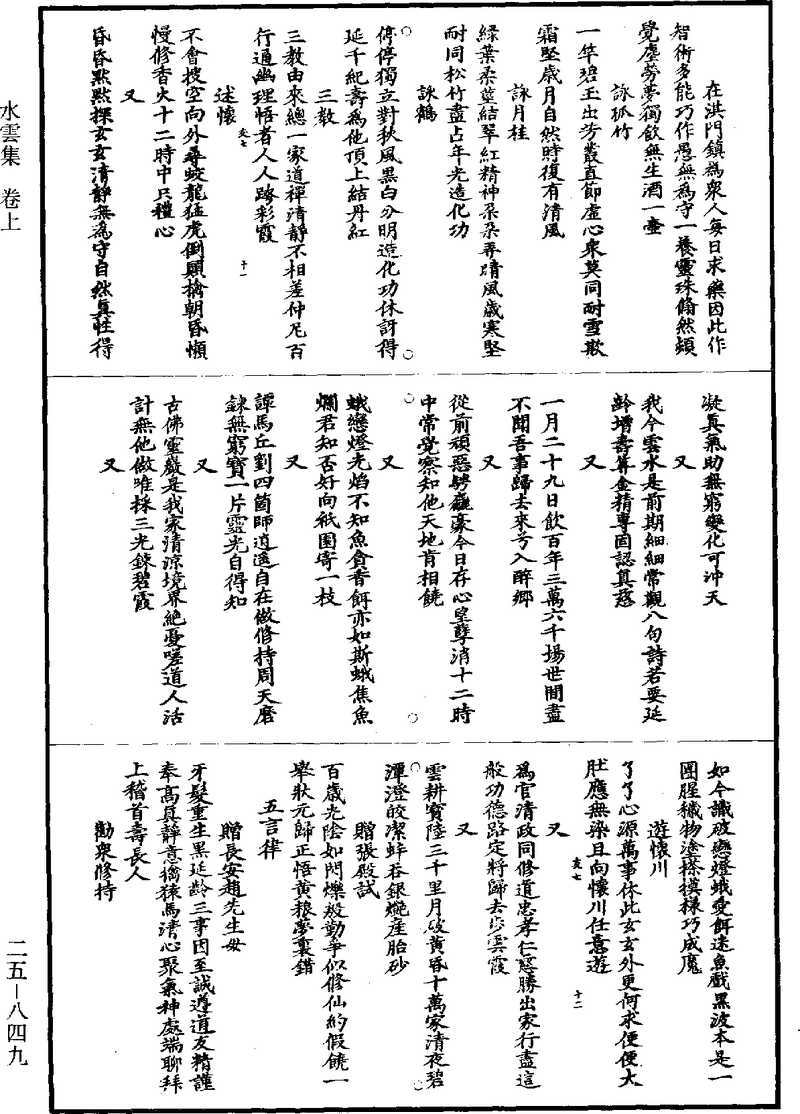 在淇門鎮為衆人每日求藥因此作
智術多能巧作愚無為守一養靈珠翛然頓
覺塵勞夢獨飲無生酒一壺
詠孤竹
一竿碧玉出芳叢直節虛心衆莫同耐雪欺
霜堅歲月自然時復有清風
詠月桂
綠葉柔莖結翠紅精神朵朵弄晴風歲寒堅
耐同松竹盡占年光造化功
詠鶴
停停獨立對秋風黑白分明造化功休訝得
延千紀壽為他頂上結丹紅
三教
三教由來總一家道禪清靜不相差仲尼百
行通幽理悟者人人跨彩霞
述懷
不會搜空向外尋蛟龍猛虎倒顛擒朝昏懶
慢修香火十二時中只禮心
又
昏昏默默探玄玄清靜無為守自然真性得
凝真氣助無窮變化可沖天
又
我今雲水是前期細細常觀八句詩若要延
齡增壽筭金精專固認真慈
又
一月二十九日飲百年三萬六千場世間盡
不關吾事歸去來兮入醉鄉
又
從前頑惡騁麤豪今日存心望孽消十二時
中常覺察知他天地肯相饒
又
蛾戀燈光焰不知魚貪香餌亦如斯蛾焦魚
爛君知否好向祇園寄一枝
又
譚馬丘劉四箇師逍遙自在做修持周天磨
鍊無窮寶一片靈光自得知
又
古佛靈巖是我家清涼境界絕憂嗟道人活
計無他做唯採三光鍊碧霞
又
如今識破戀燈蛾愛餌迷魚戲黑波本是一
團腥穢物塗搽模樣巧成魔
遊懷川
了了心源萬事休此玄玄外更何求便便大
肚應無染且向懷川任意遊
又
為官清政同修道忠孝仁慈勝出家行盡這
般功德路定將歸去步雲霞
又
雲耕寶陸三千里月破黃昏十萬家清夜碧
潭澄皎潔蚌吞銀燄產胎砂
贈張殿試
百歲光陰如閃爍殺動爭似修仙約假饒一
舉狀元歸正悟黃粮夢裏錯
五言律
贈長安趙先生母
牙髮重生黑延齡三事因至誠遵道友精謹
奉高真靜意擒猿馬清心聚氣神處端聊拜
上稽首壽長人
勸衆修持
友七
十一
友七
十二
水雲集 卷上
二五—八四九